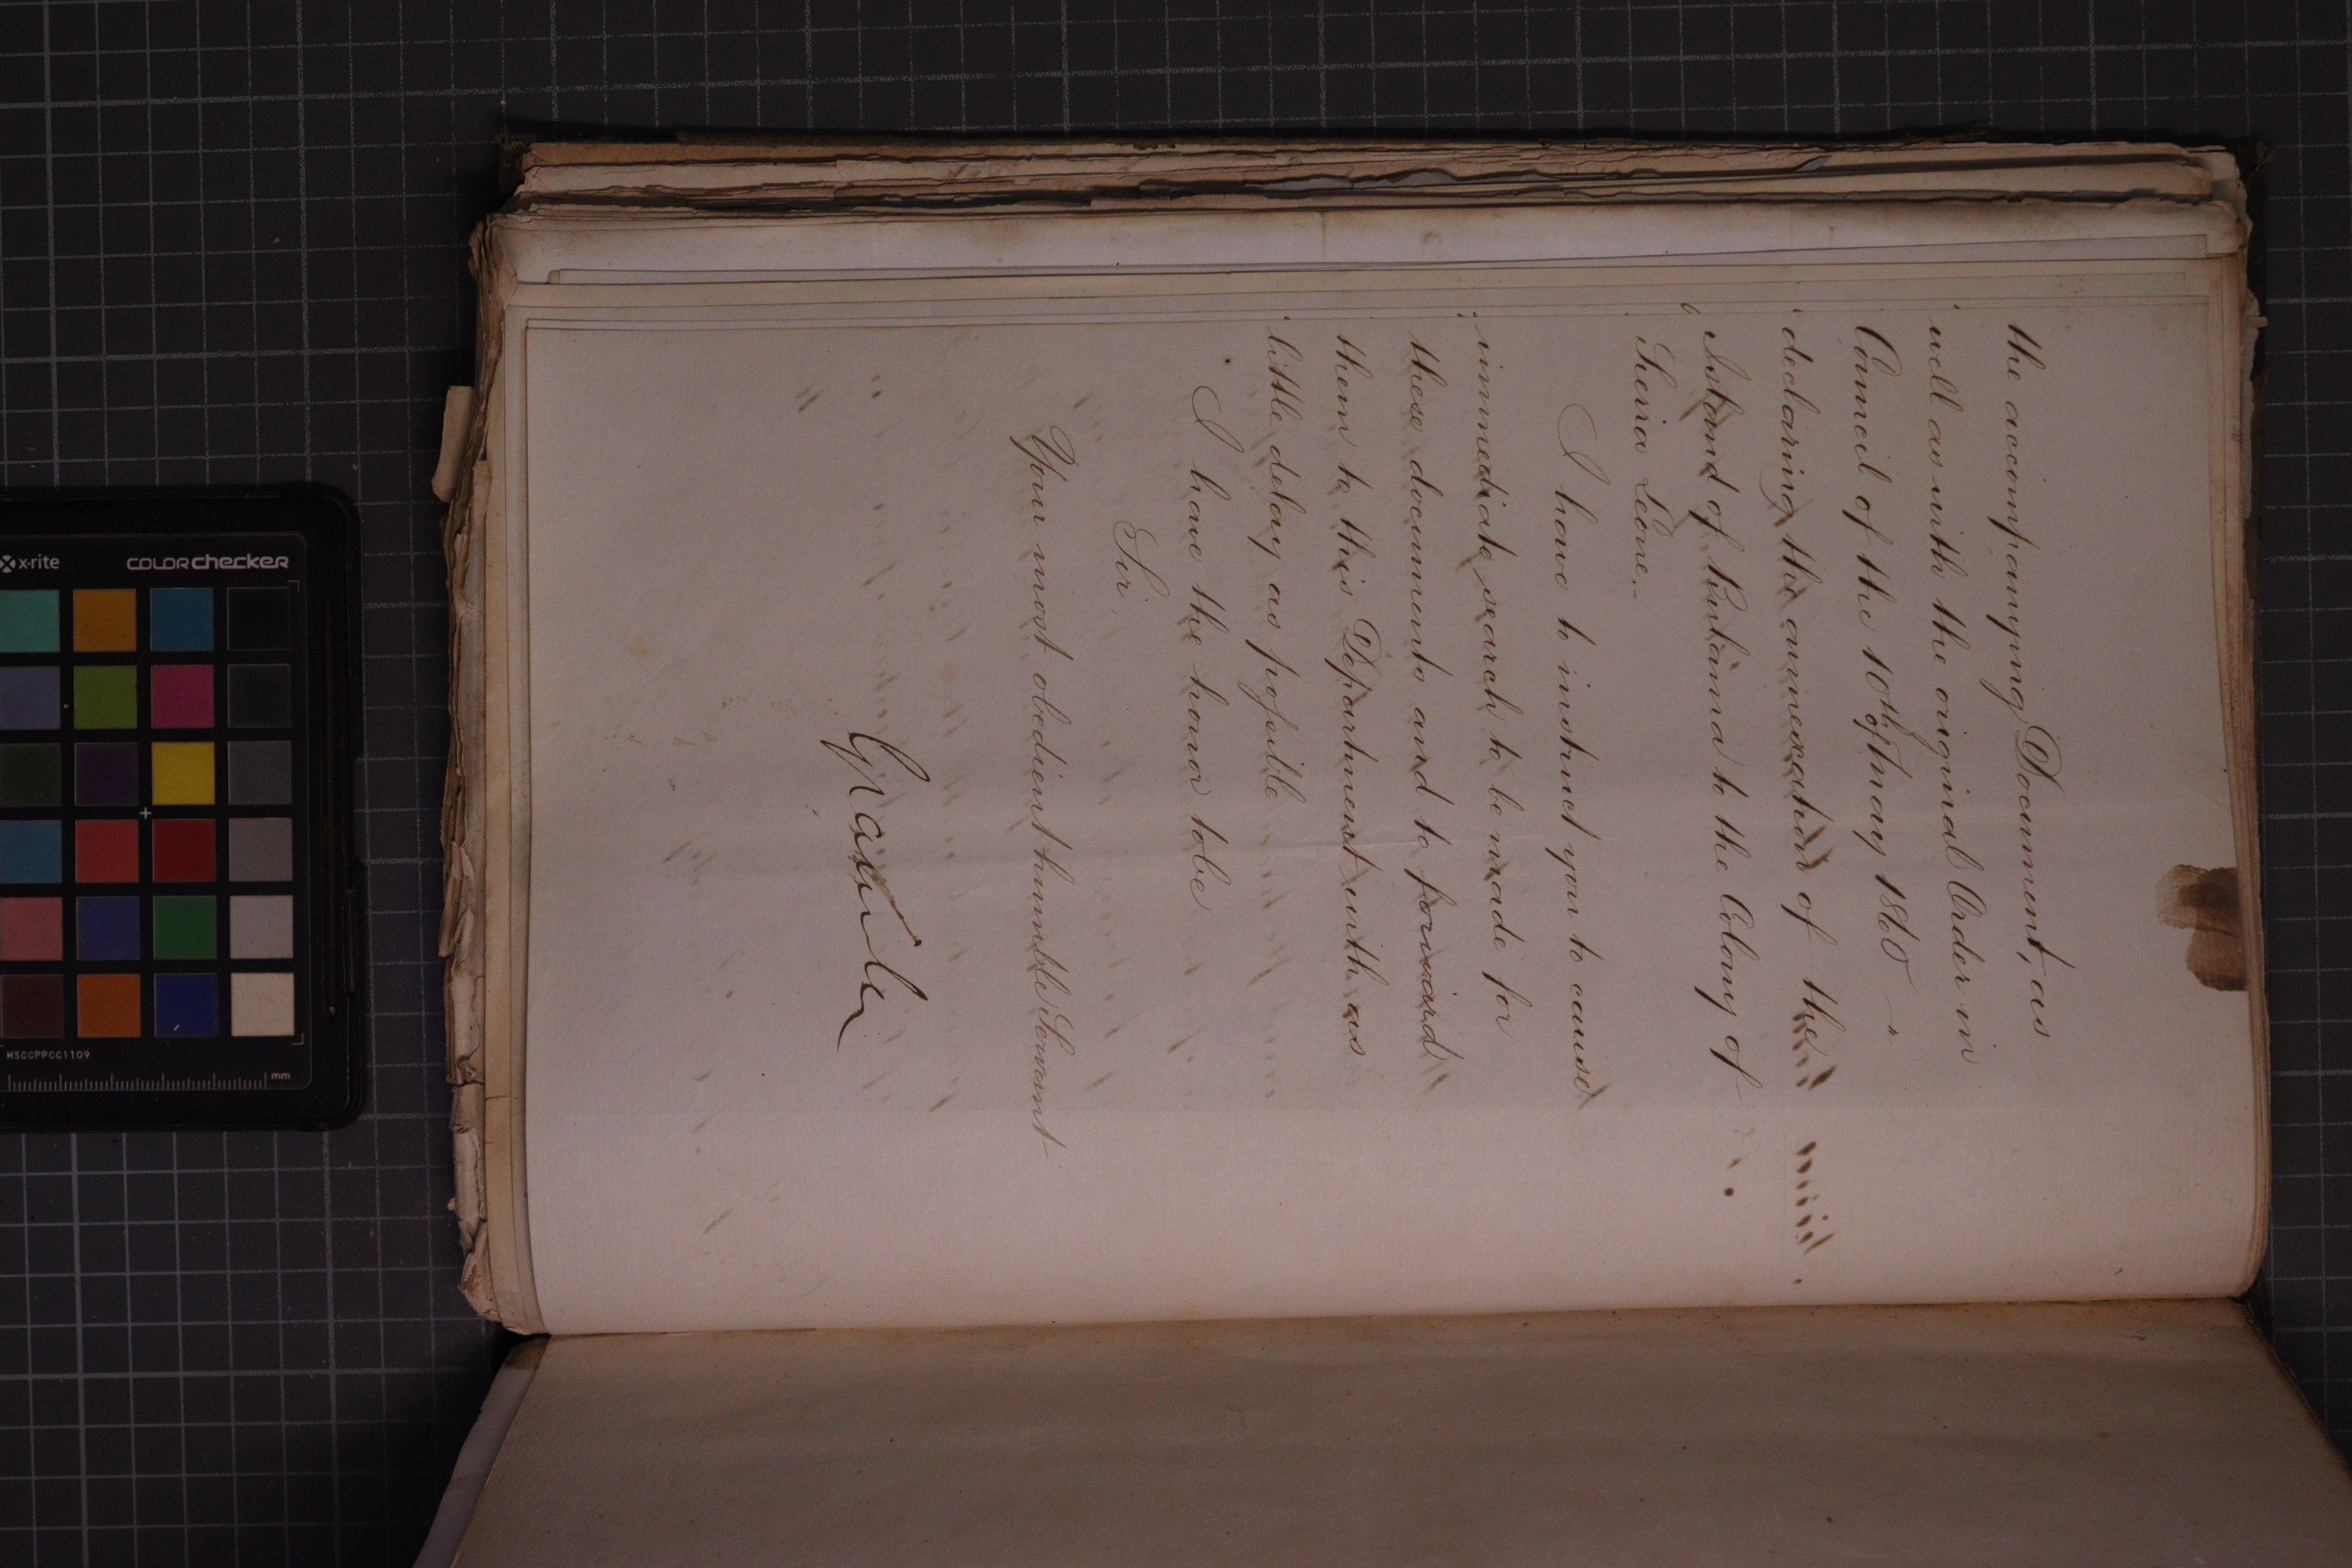 the accompanying Document, as
well as with the original Order in
Council of the 10th of May 1860
declaring the annexation of the
Island of Bulama to the Colony of
Sierra Leone.
I have to instruct you to cause
immediate search to be made for
these documents and to forward
them to this Department with as
little delay as possible
I have the honor to be
Sir
Your most obedient humble Servant
Granville
x-rite
colorchecker
MSCCPPCC1109
mm